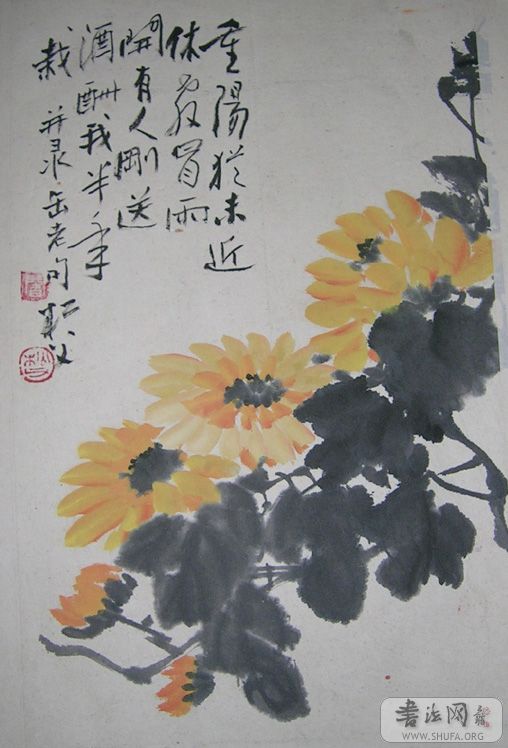 重陽猶未近
休教冒雨
開有人剛送
酒酬我半年
栽 并录缶老句
書法网
WWW.SHUFA.ORG